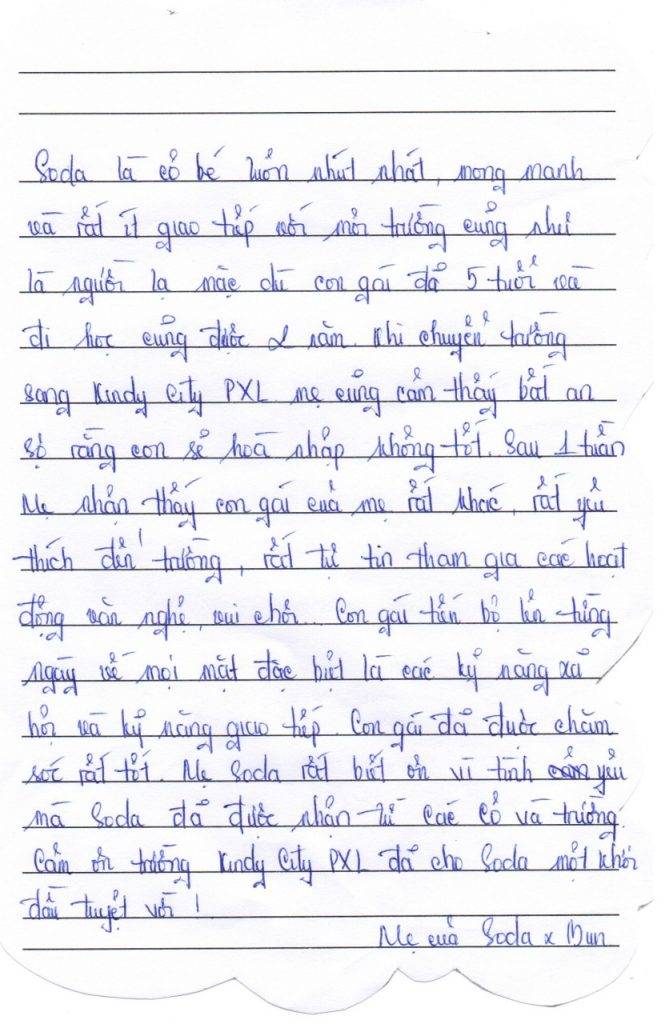 Soda là cô bé luôn nhút nhát, mong manh
và rất ít giao tiếp với môi trường cũng như
là người lạ mặc dù con gái đã 5 tuổi và
đi học cũng được 2 năm. Khi chuyển trường
sang Kindy City PXL mẹ cũng cảm thấy bất an
sợ rằng con sẽ hoà nhập không tốt. Sau 1 tuần
Mẹ nhận thấy con gái của mẹ rất khác, rất yêu
thích đến trường, rất tự tin tham gia các hoạt
động văn nghệ, vui chơi... Con gái tiến bộ lên từng
ngày về mọi mặt đặc biệt là các kỹ năng xã
hội và kỹ năng giao tiếp. Con gái đã được chăm
sóc rất tốt. Mẹ Soda rất biết ơn vì tình yêu
mà Soda đã được nhận từ các cô và trường.
Cảm ơn trường Kindy City PXL đã cho Soda một khởi
đầu tuyệt vời!
Mẹ của Soda x Bun